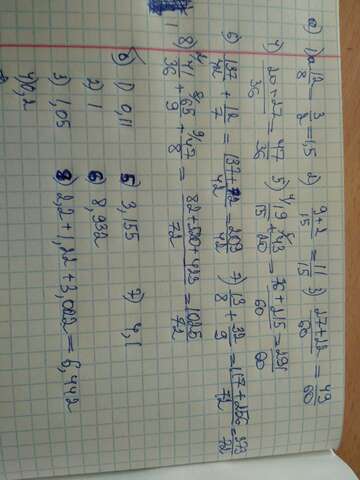 а) 1) 12/8 = 3/2 = 1,5 2) 9+2/15 = 11/15 3) 27+22/60 = 49/60
4) 20+27/36 = 47/36 5) 19/15 + 43/20 = 76+215/60 = 291/60
6) 137/42 + 12/7 = 137+72/42 = 209/42 7) 13/8 + 32/9 = 117+256/72 = 373/72
8) 41/36 + 65/9 + 47/8 = 82+520+423/72 = 1025/72
б) 1) 0,11 5) 3,155 7) 4,1
2) 1 6) 8,932
3) 1,05 8) 2,2+1,22+3,022=6,442
4) 0,2